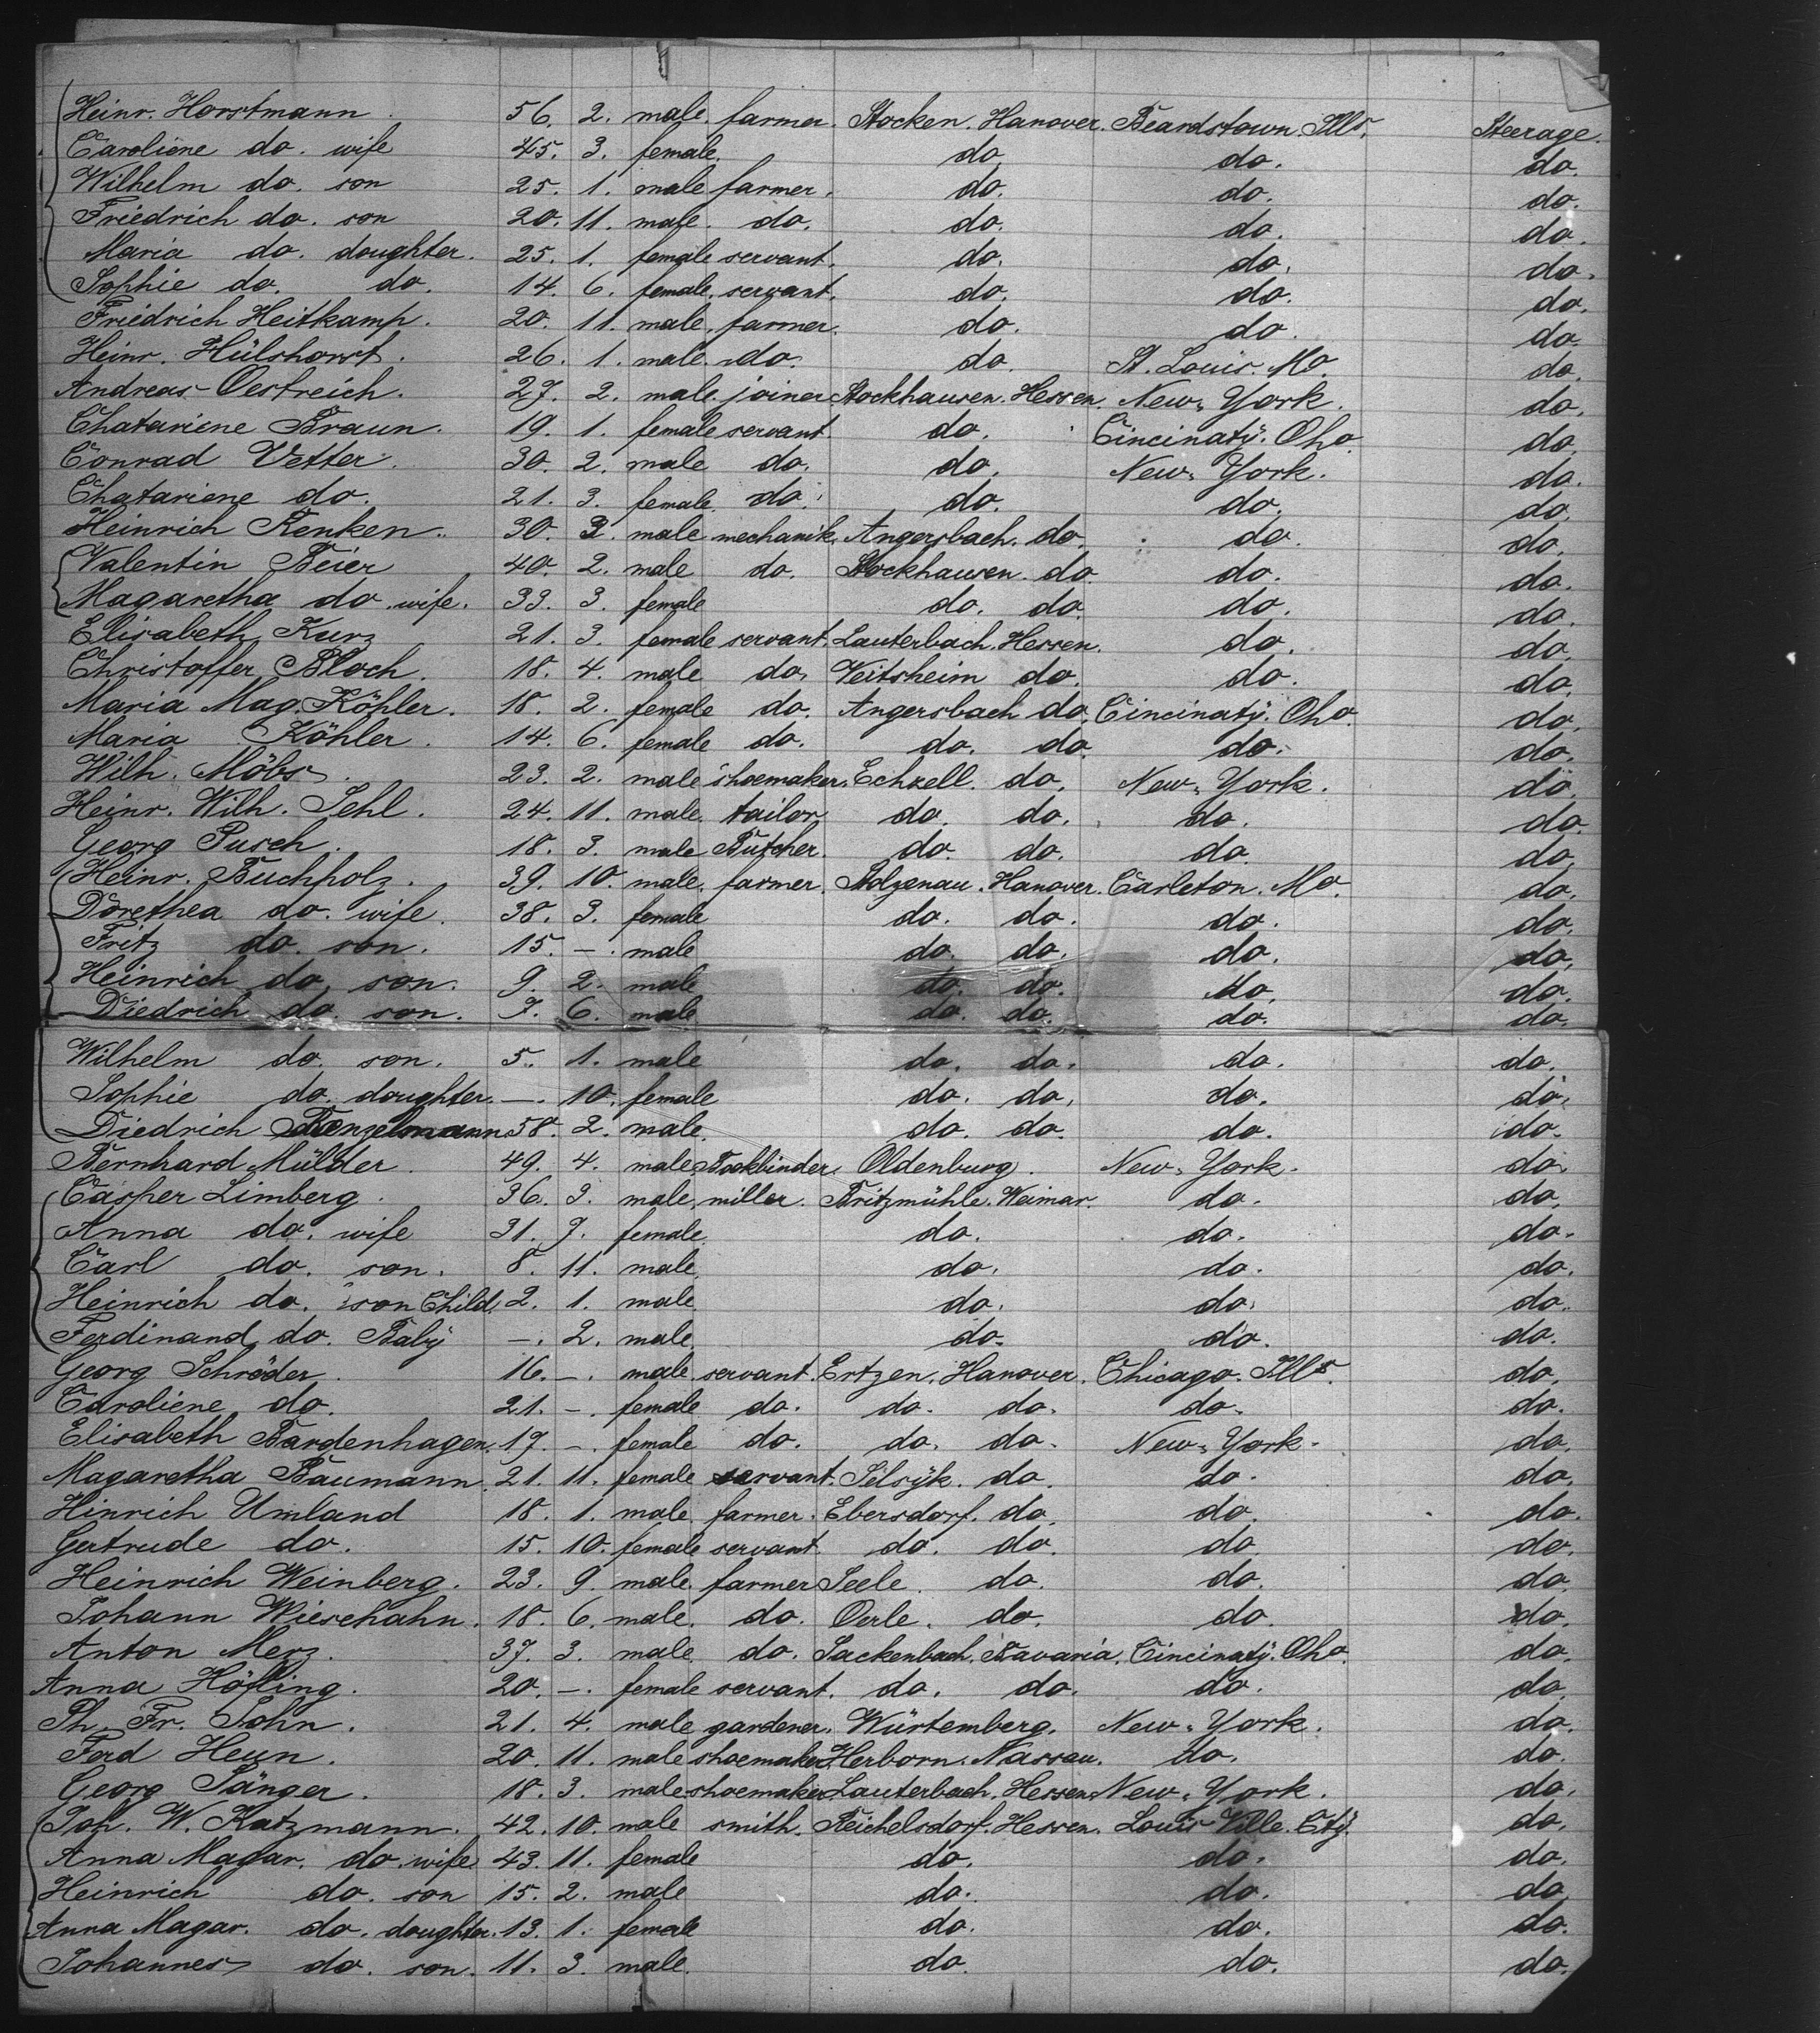 Heinr. Horstmann. 56. 2. male. farmer. Stocken. Hanover. Beardstown. Ills. Steerage.
Caroliene do. wife 45. 3. female. do. do. do.
Wilhelm do. son 25. 1. male farmer. do. do. do.
Friedrich do. son 20. 11. male. do. do. do. do.
Maria do. doughter. 25. 1. female servant. do. do. do.
Sophie do. do. 14. 6. female. servant. do. do. do.
Friedrich Heitkamp. 20. 11. male. farmer. do. do. do.
Heinr. Hülshorst. 26. 1. male. do. do. St. Louis. Mo. do.
Andreas Oestreich. 27. 2. male. joiner Stockhausen. Hessen. New York. do.
Chatariene Braun. 19. 1. female servant. do. Cincinaty. Oho. do.
Conrad Vetter. 30. 2. male do. do. New York. do.
Chatariene do. 21. 3. female. do. do. do. do.
Heinrich Renken. 30. 2. male mechanik. Angersbach. do. do. do.
Valentin Beier 40. 2. male do. Stockhausen. do. do. do.
Magaretha do. wife. 33. 3. female do. do. do. do.
Elisabeth Kurz 21. 3. female servant. Lauterbach. Hessen. do. do.
Christoffer Bloch. 18. 4. male do. Veitsheim do. do. do.
Maria Mag. Köhler. 18. 2. female do. Angersbach do. Cincinaty. Oho. do.
Maria Köhler. 14. 6. female do. do. do. do. do.
Wilh. Möbs. 23. 2. male shoemaker. Echzell. do. New York. do.
Heinr. Wilh. Sehl. 24. 11. male. tailor do. do. do. do.
Georg Pusch. 18. 3. male Butcher. do. do. do. do.
Heinr. Buchholz. 39. 10. male. farmer. Stolzenau. Hanover. Carleton. Mo. do.
Dorethea do. wife. 38. 3. female do. do. do. do.
Fritz do. son. 15. –. male do. do. do. do.
Heinrich do. son. 9. 2. male do. do. do. do.
Diedrich do. son. 7. 6. male do. do. do. do.
Wilhelm do. son. 5. 1. male do. do. do. do.
Sophie do. doughter. –. 10. female do. do. do. do.
Diedrich Benzelmann 58. 2. male. do. do. do. do.
Bernhard Mülder. 49. 4. male. Bookbinder. Oldenburg. New York. do.
Casper Limberg. 36. 3. male. miller. Britzmühle. Weimar. do. do.
Anna do. wife 31. 7. female. do. do. do.
Carl do. son. 8. 11. male. do. do. do.
Heinrich do. son Child. 2. 1. male. do. do. do.
Ferdinand do. Baby –. 2. male. do. do. do.
Georg Schröder. 16. –. male servant. Ertzen. Hanover. Chicago. Ills. do.
Caroliene do. 21. –. female do. do. do. do. do.
Elisabeth Bardenhagen. 17. –. female do. do. do. New York. do.
Magaretha Baumann. 21. 11. female servant. Selsyk. do. do. do.
Hinrich Umland 18. 1. male. farmer. Ebersdorf. do. do. do.
Gertrude do. 15. 10. female servant. do. do. do. do.
Heinrich Weinberg. 23. 9. male. farmer Seele. do. do. do.
Johann Wieschahn. 18. 6. male. do. Oerle. do. do. do.
Anton Merz. 37. 3. male. do. Sackenbach. Bavaria. Cincinaty. Oho. do.
Anna Höfling. 20. –. female servant. do. do. do. do.
Ph. Fr. John. 21. 4. male gardener. Würtemberg. New York. do.
Ferd Heun. 20. 11. male shoemaker Herborn. Nassau. do. do.
Georg Sänger. 18. 3. male shoemaker Lauterbach. Hessen New York. do.
Joh. W. Katzmann. 42. 10. male smith. Reichelsdorf. Hessen. Louis Ville. City. do.
Anna Magar. do. wife 43. 11. female do. do. do.
Heinrich do. son 15. 2. male do. do. do.
Anna Magar. do. doughter. 13. 1. female do. do. do.
Johannes do. son. 11. 3. male. do. do. do.